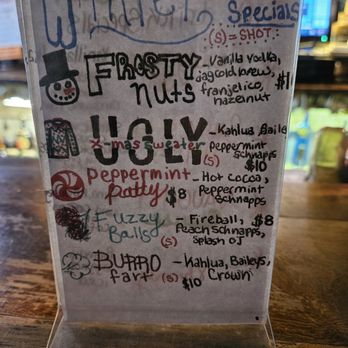 Specials
(S) = SHOT.
FROSTY nuts - Vanilla vodka,
Jag cold brew,
franjelico,
hazelnut
UGLY - Kahlua, Baile
x-mas sweater peppermint
(S) schnapps
$10
Peppermint - Hot cocoa,
Patty $8 Peppermint
Schnapps
Fuzzy - Fireball, $8
Balls Peach schnapps,
(S) Splash OJ
BURRO - Kahlua, Baileys,
fart (S) $10 Crown